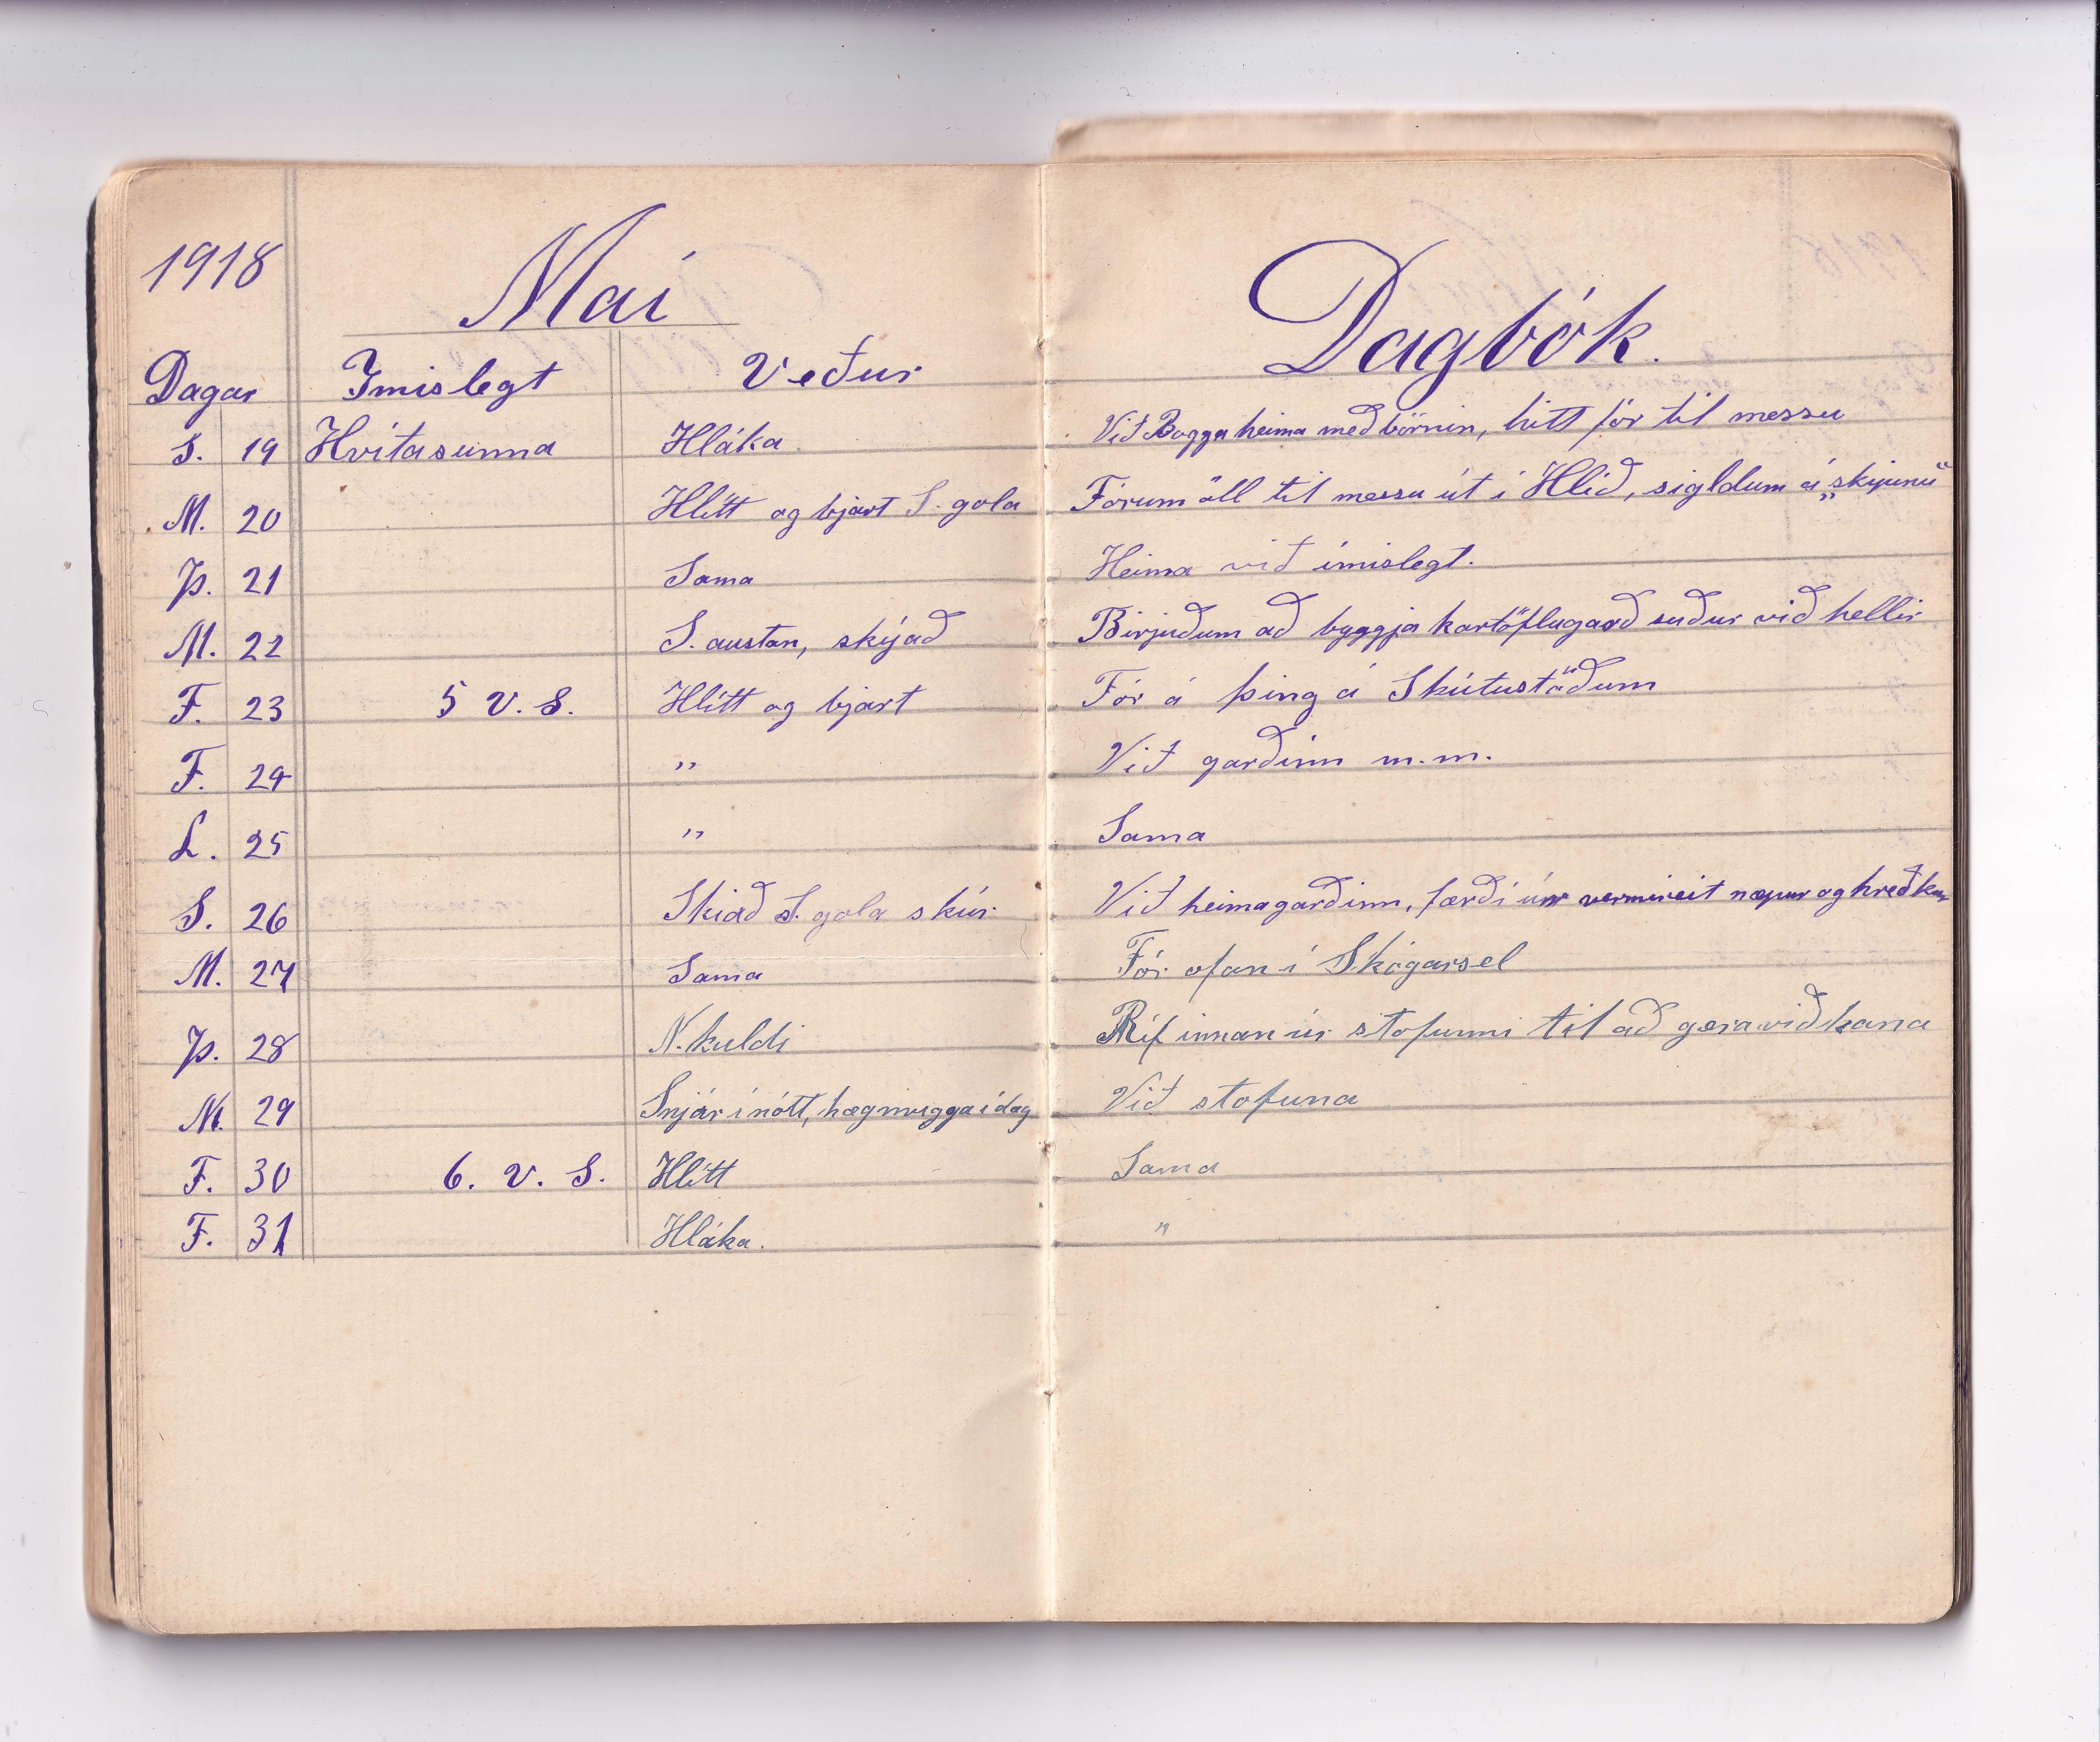 1918 Maí Dagbók.
Dagar Imislegt Veður
S. 19 Hvítasunna Hláka. Við Bogga heima með börnin, hitt fór til messu
M. 20 Hlítt og bjart S. gola Fórum öll til messu út í Hlíð, sigldum á „skipinu“
Þ. 21 Sama Heima við ímislegt.
M. 22 S. austan, skýað Birjuðum að byggja kartöflugarð suður við hellir
F. 23 5 V. S. Hlítt og bjart Fór á þing á Skútustöðum
F. 24 " Við garðinn m.m.
L. 25 " Sama
S. 26 Skiað S. gola skúr Við heimagarðinn, færði úr vermireit næpur og hreðkur
M. 27 Sama Fór ofan í Skógarsel
Þ. 28 N. kuldi Ríf innan úr stofunni til að gera við hana
M. 29 Snjór í nótt, hægmugga í dag Við stofuna
F. 30 6. V. S. Hlítt Sama
F. 31 Hláka. "